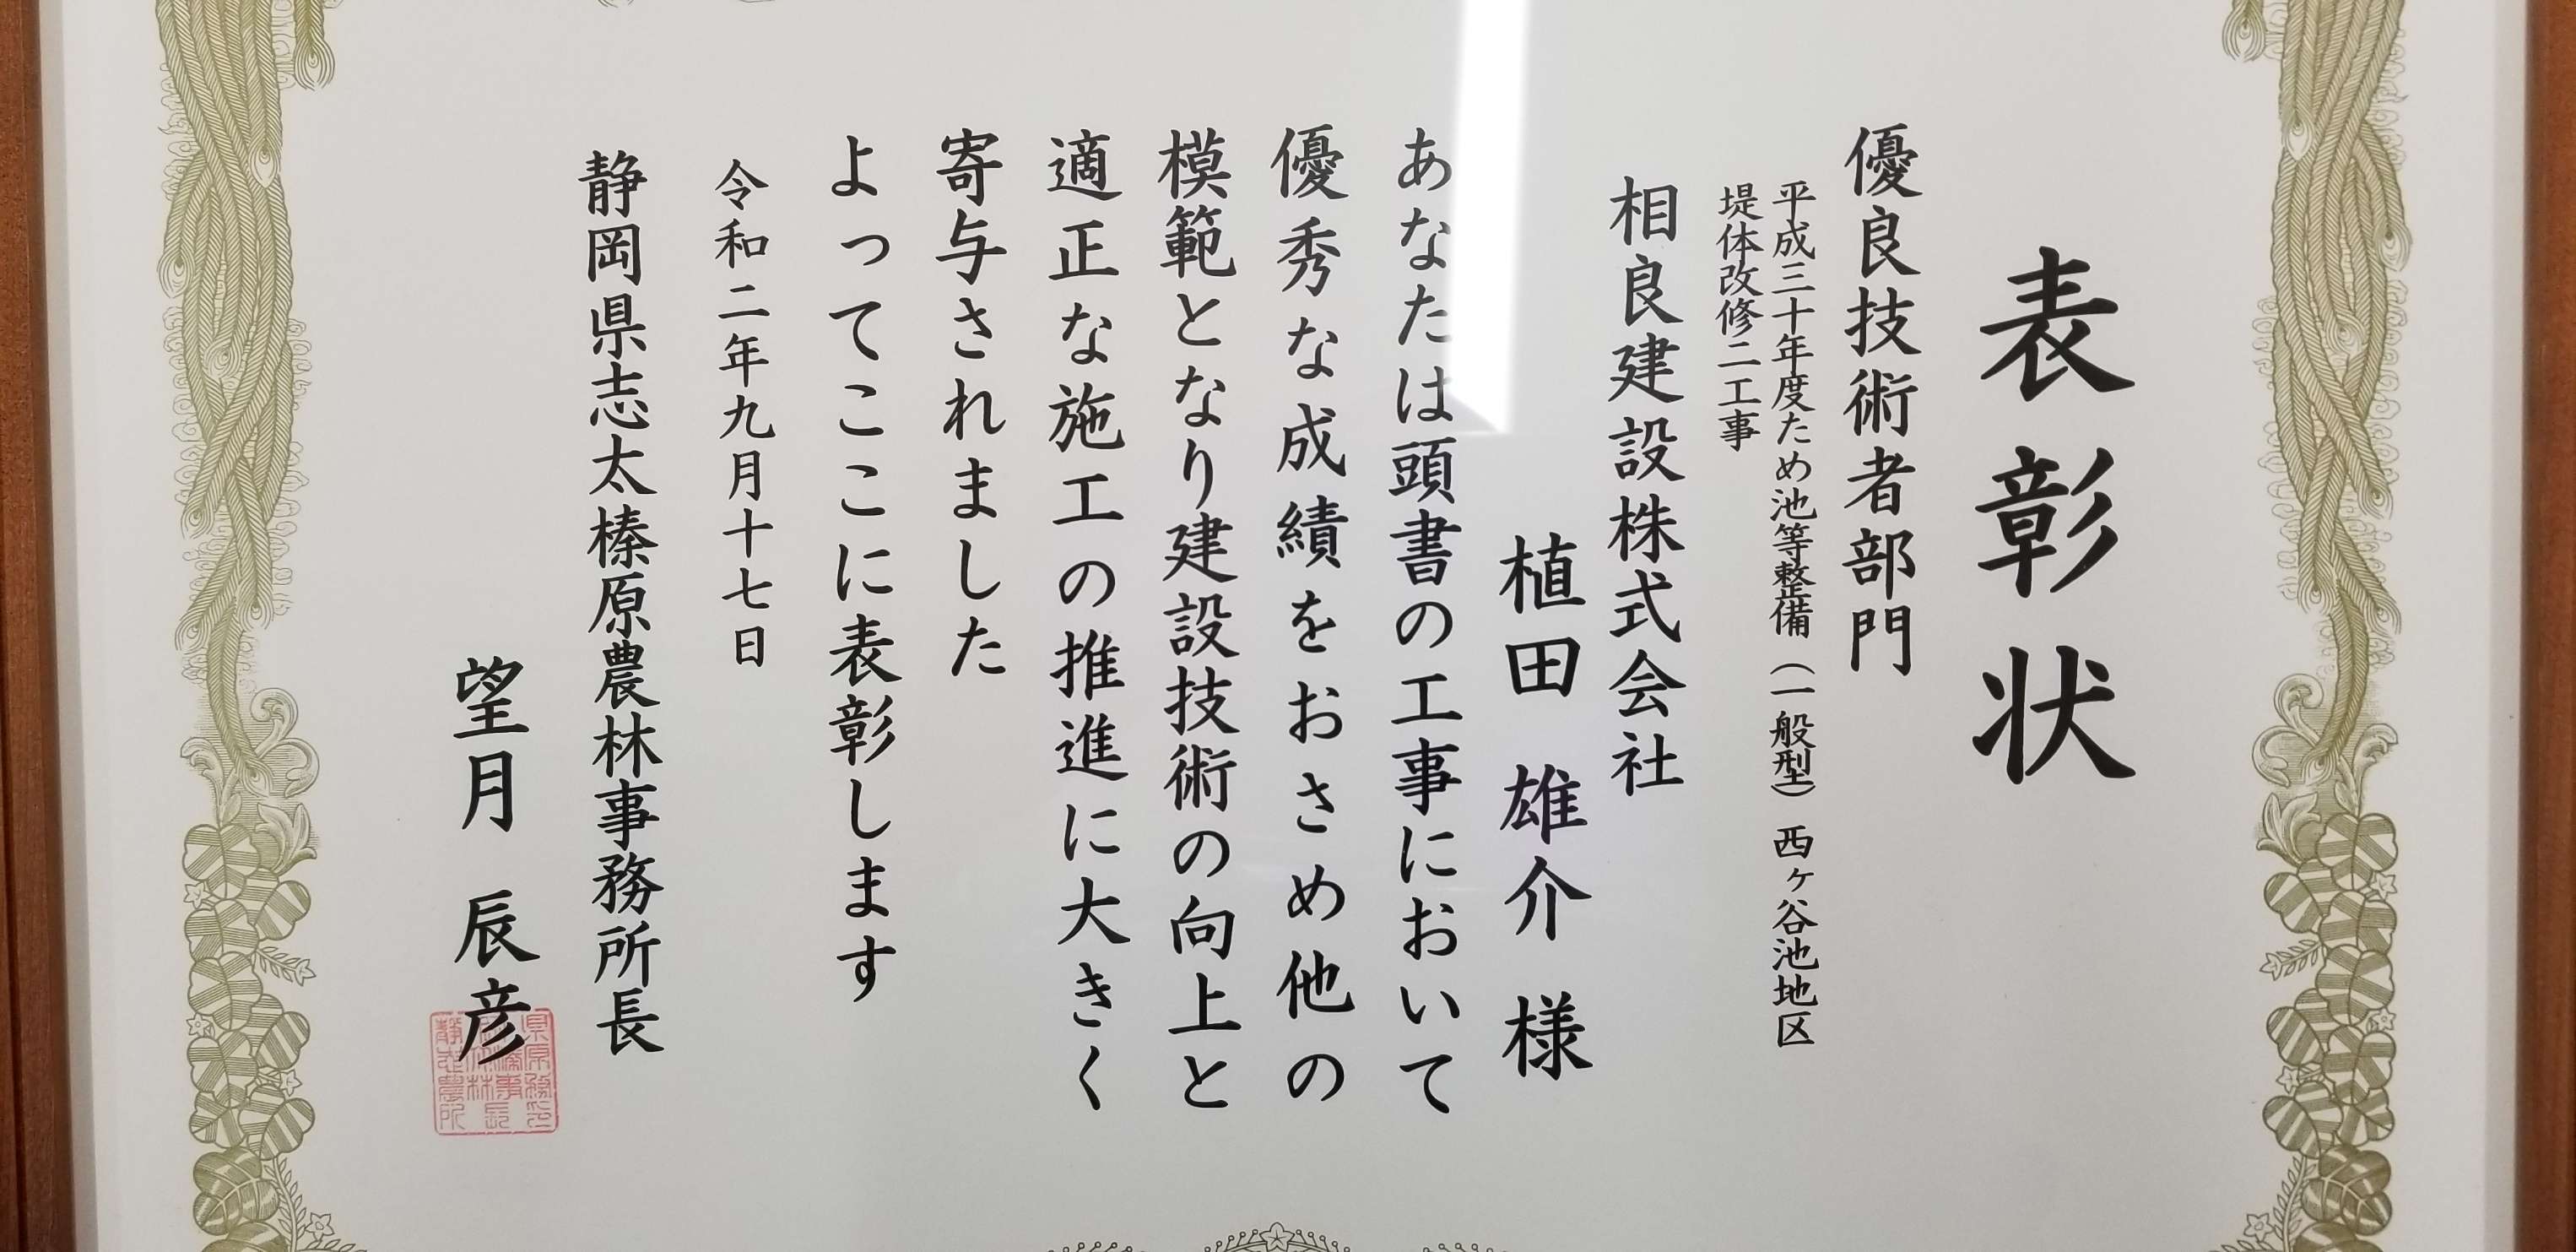 表彰状
優良技術者部門
平成三十年度ため池等整備（一般型）西ヶ谷池地区
堤体改修二工事
相良建設株式会社
植田 雄介 様
あなたは頭書の工事において
優秀な成績をおさめ他の
模範となり建設技術の向上と
適正な施工の推進に大きく
寄与されました
よってここに表彰します
令和二年九月十七日
静岡県志太榛原農林事務所長
望月 辰彦